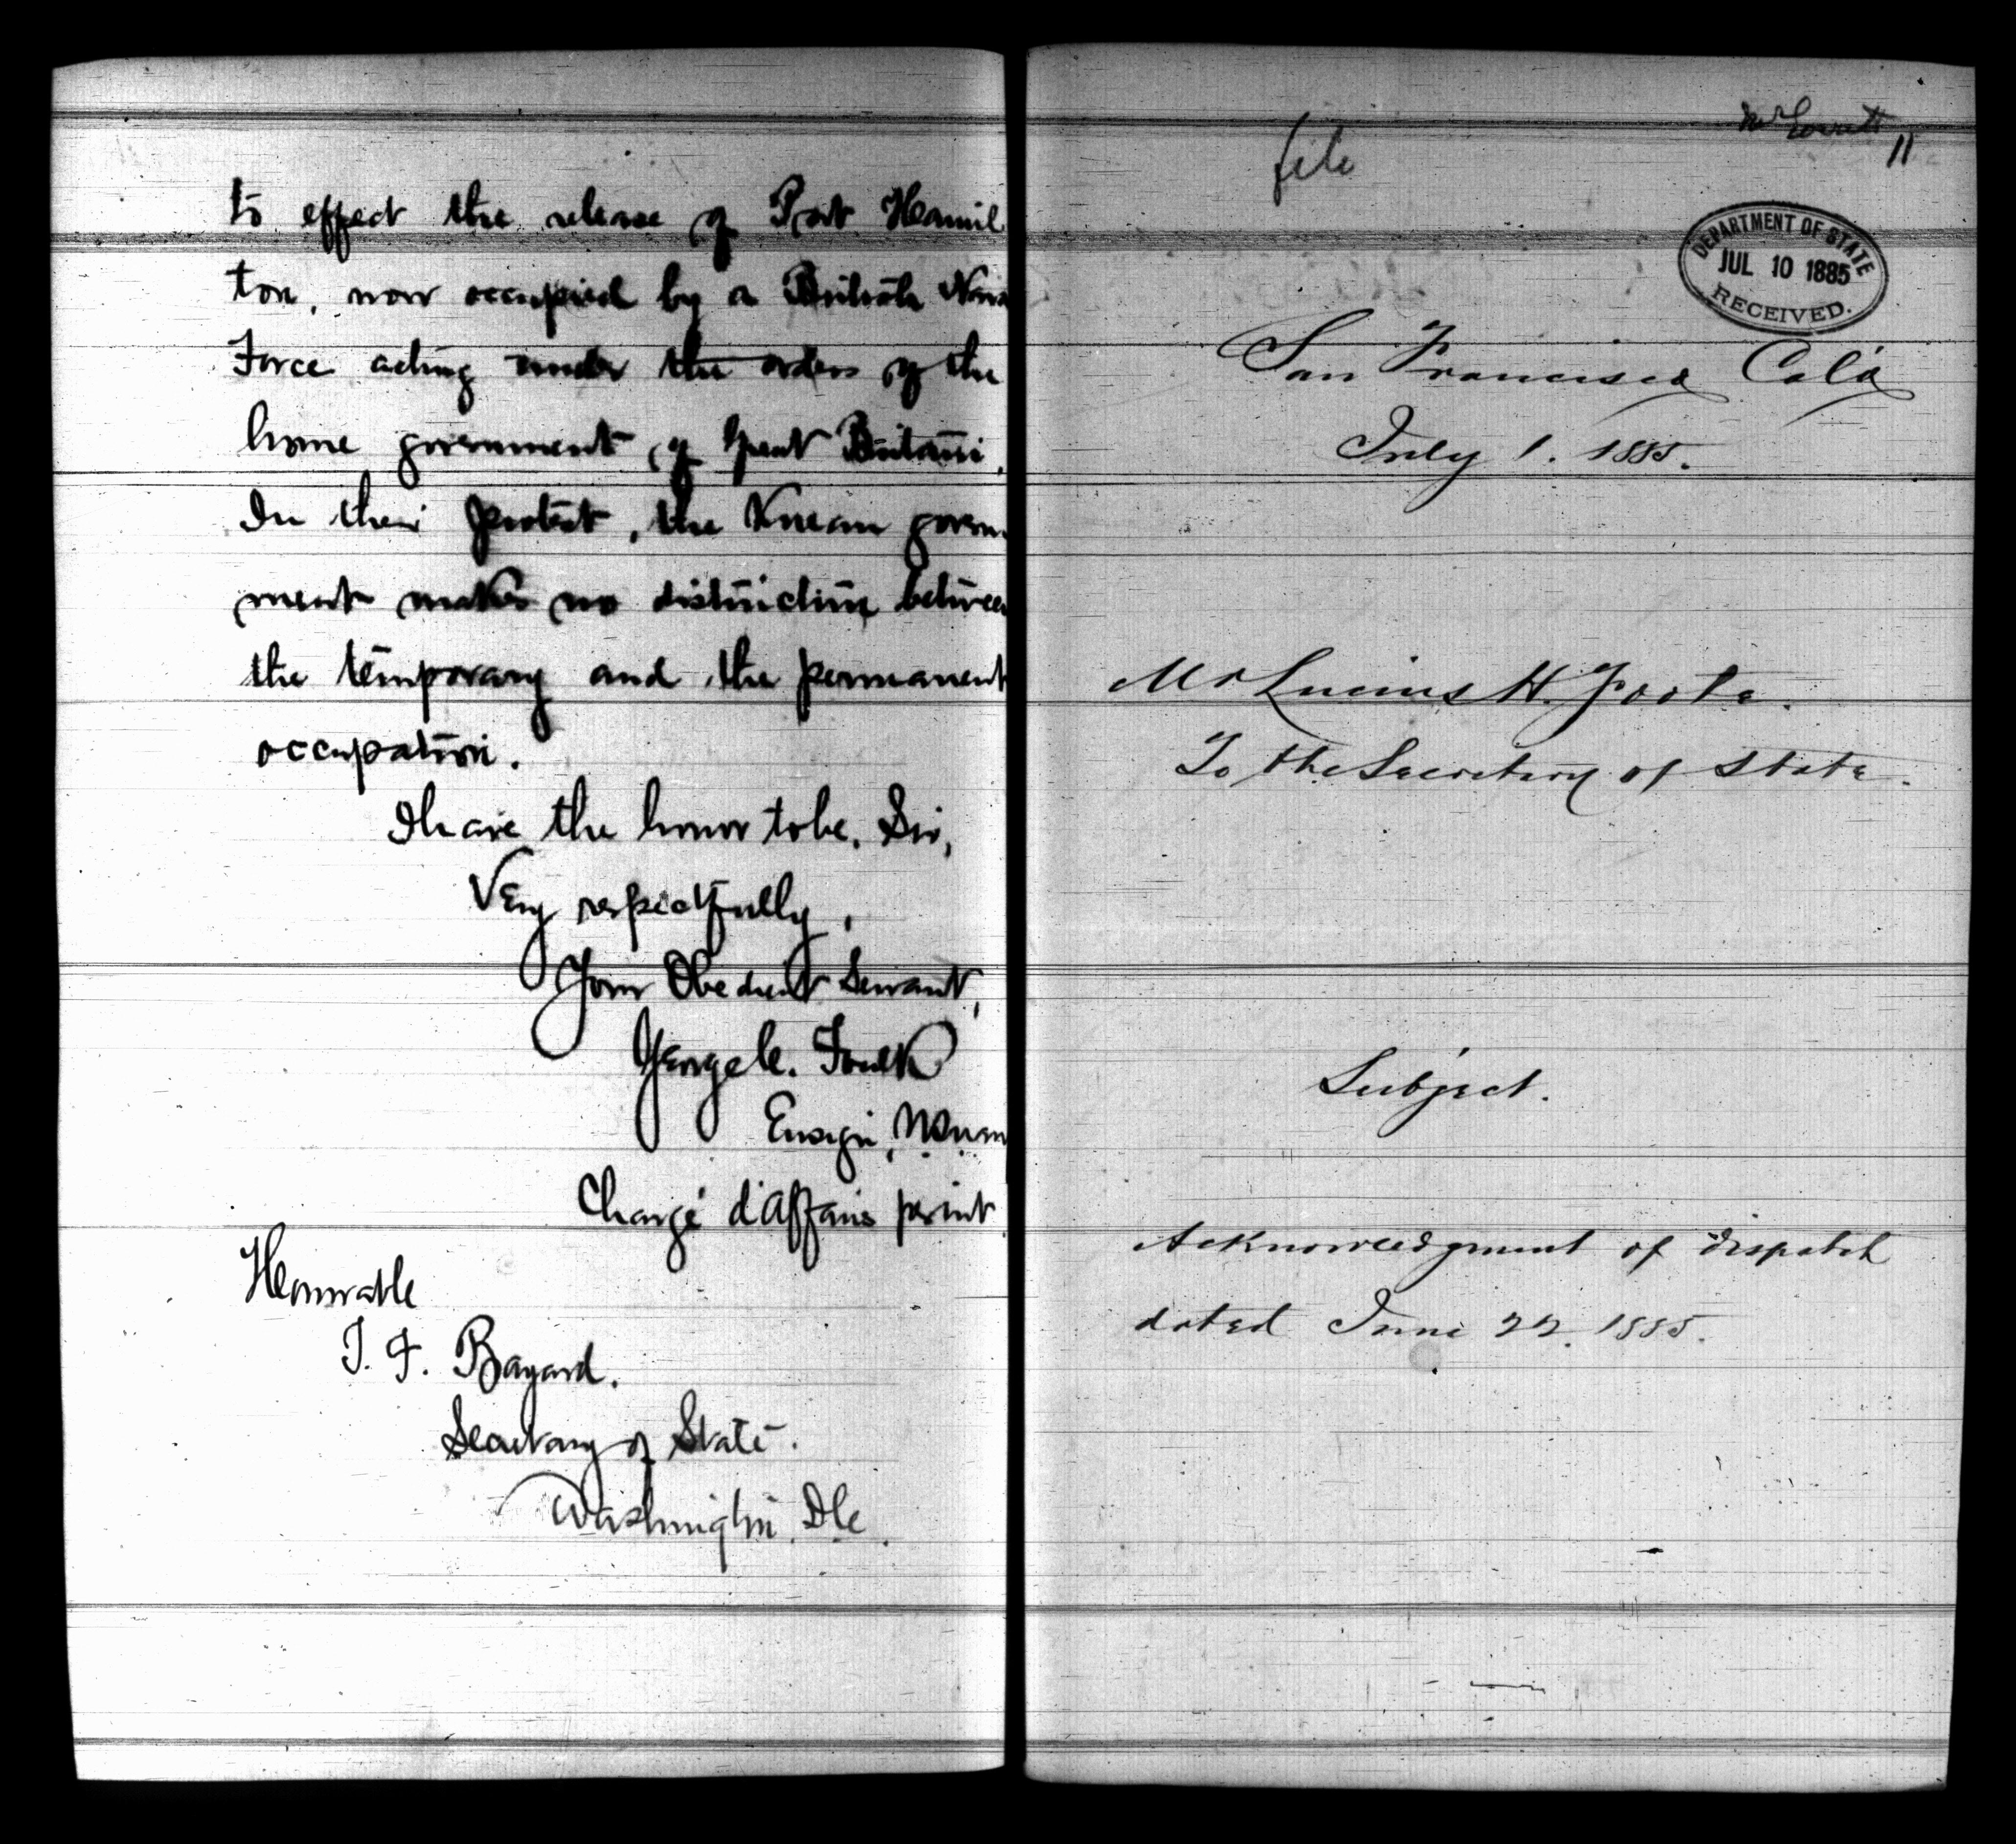 to effect the release of Port Hamil
ton, now occupied by a British Nava
Force acting under the orders of the
home government of Great Britain.
In their protest, the Korean govern-
ment makes no distinction between
the temporary and the permanent
occupation.
I have the honor to be, Sir,
Very respectfully,
Your Obedient Servant,
George C. Foulk
Ensign,
Chargé d'Affairs
Honorable
T. F. Bayard.
Secretary of State.
Washington, D.C.
file
11
DEPARTMENT OF STATE
JUL 10 1885
RECEIVED.
San Francisco Cala
July 1. 1885.
Mr Lucius H. Foote.
To the Secretary of State.
Subject.
Acknowledgment of dispatch
dated June 22. 1885.